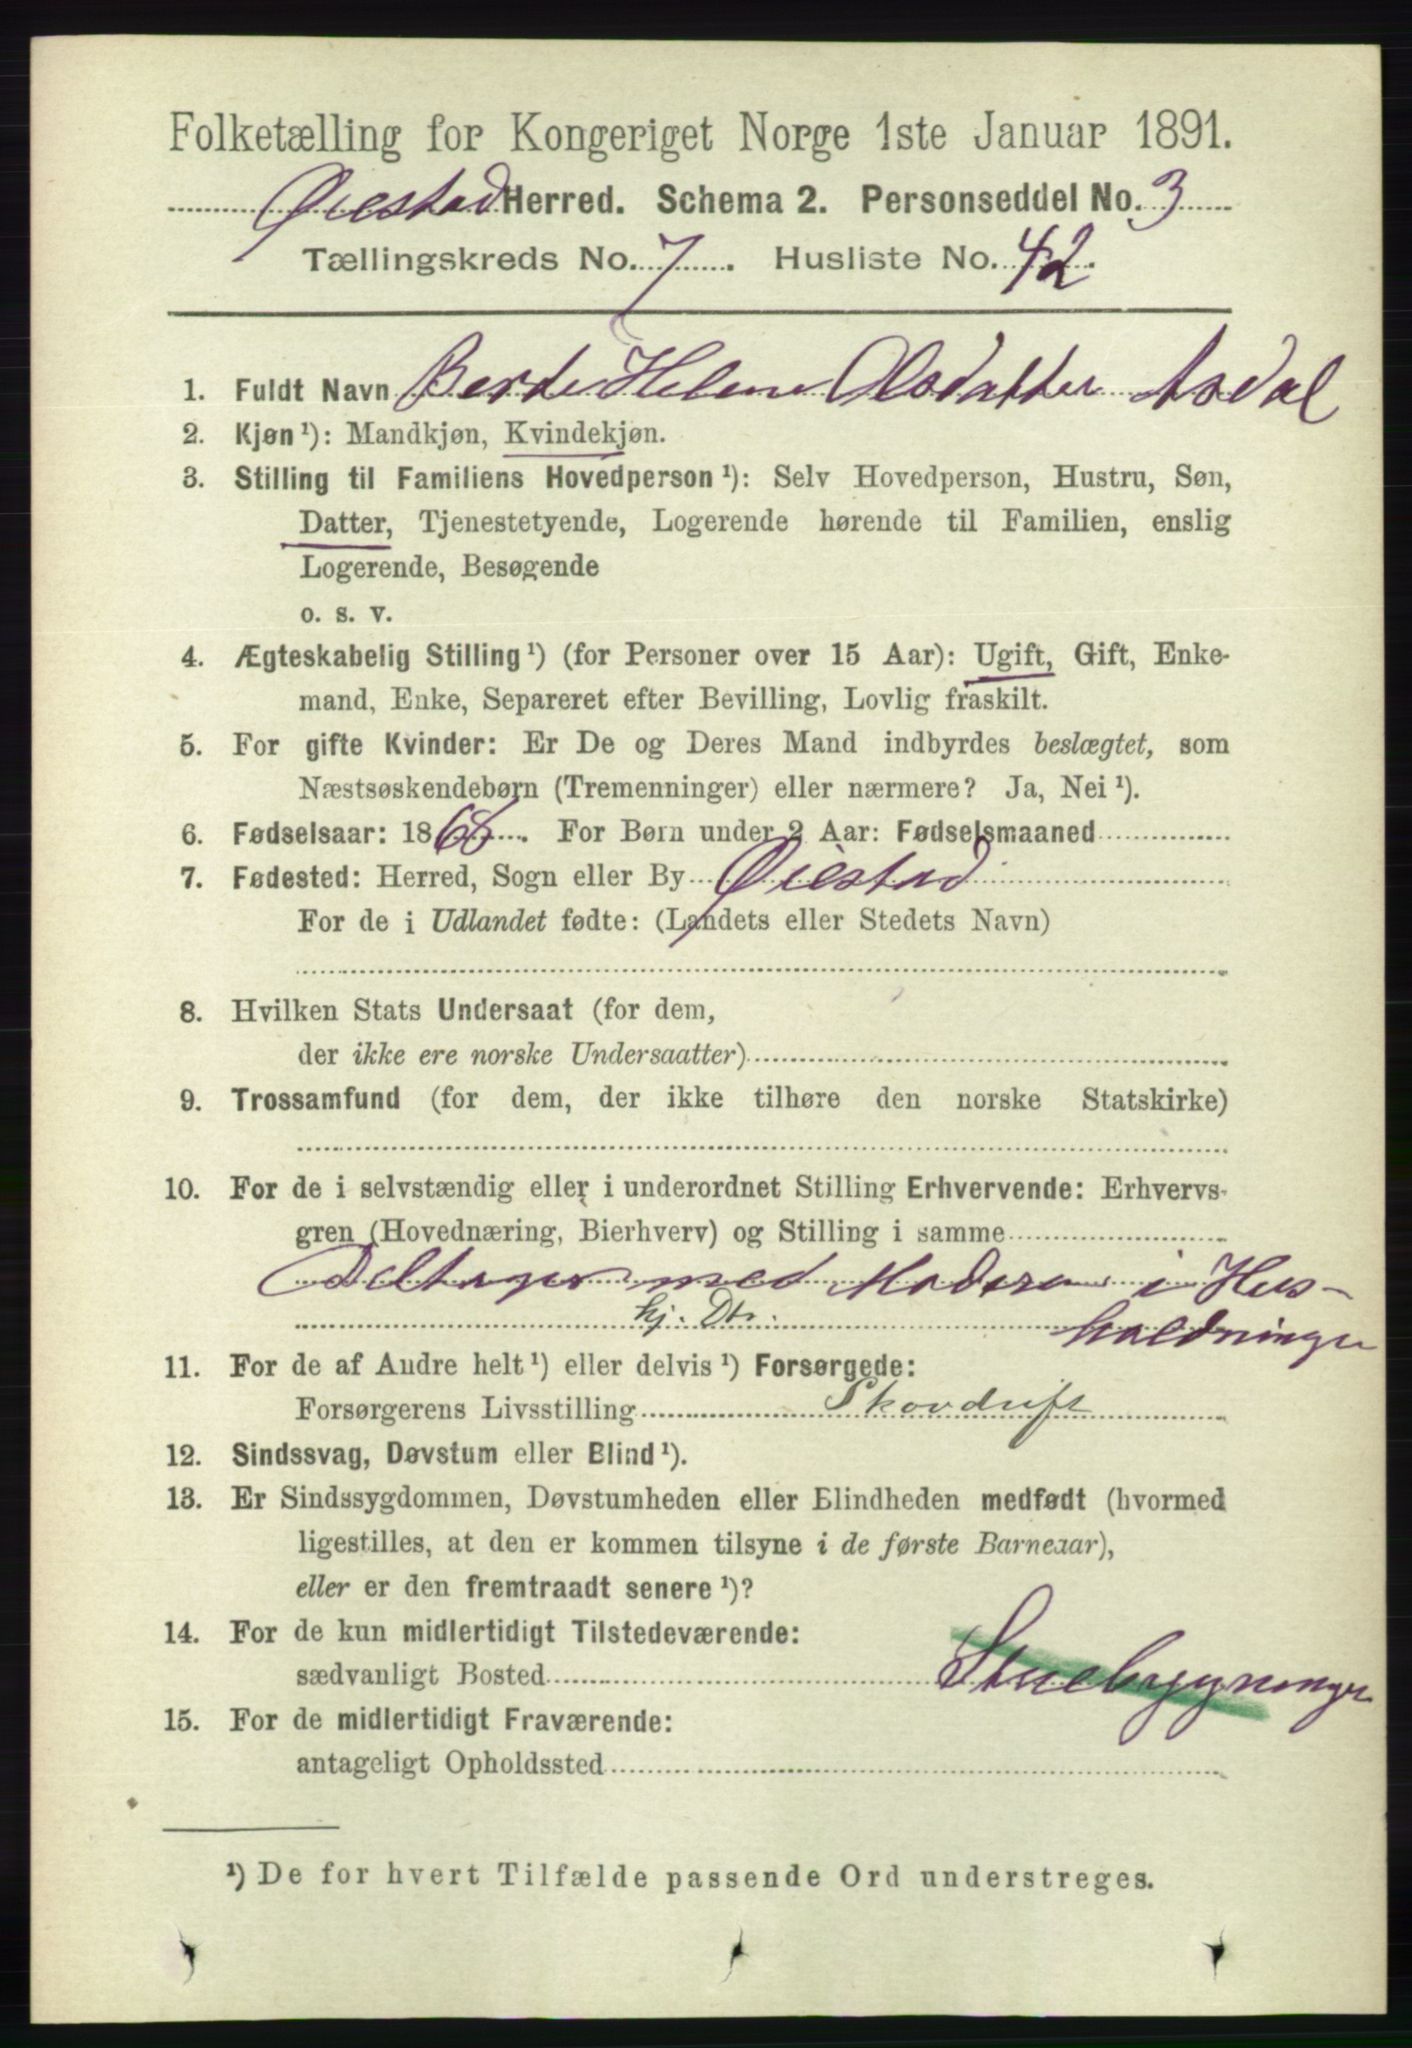 Folketælling for Kongeriget Norge 1ste Januar 1891.
Øiestad Herred. Schema 2. Personseddel No. 3
Tællingskreds No. 7. Husliste No. 42.
1. Fuldt Navn Berte Helene Olsdatter Asdal
2. Kjøn ¹): Mandkjøn, Kvindekjøn.
3. Stilling til Familiens Hovedperson ¹): Selv Hovedperson, Hustru, Søn,
Datter, Tjenestetyende, Logerende hørende til Familien, enslig
Logerende, Besøgende
o. s. v.
4. Ægteskabelig Stilling ¹) (for Personer over 15 Aar): Ugift, Gift, Enke-
mand, Enke, Separeret efter Bevilling, Lovlig fraskilt.
5. For gifte Kvinder: Er De og Deres Mand indbyrdes beslægtet, som
Næstsøskendebørn (Tremenninger) eller nærmere? Ja, Nei ¹).
6. Fødselsaar: 1866. For Børn under 2 Aar: Fødselsmaaned
7. Fødested: Herred, Sogn eller By Øiestad
For de i Udlandet fødte: (Landets eller Stedets Navn)
8. Hvilken Stats Undersaat (for dem,
der ikke ere norske Undersaatter)
9. Trossamfund (for dem, der ikke tilhøre den norske Statskirke)
10. For de i selvstændig eller i underordnet Stilling Erhvervende: Erhvervs-
gren (Hovednæring, Bierhverv) og Stilling i samme
Deltager med Moderen i Hus-
hj. Dtr. holdningen
11. For de af Andre helt ¹) eller delvis ¹) Forsørgede:
Forsørgerens Livsstilling Skovdrift
12. Sindssvag, Døvstum eller Blind ¹).
13. Er Sindssygdommen, Døvstumheden eller Blindheden medfødt (hvormed
ligestilles, at den er kommen tilsyne i de første Barneaar),
eller er den fremtraadt senere ¹)?
14. For de kun midlertidigt Tilstedeværende:
sædvanligt Bosted Stuebygningen
15. For de midlertidigt Fraværende:
antageligt Opholdssted
¹) De for hvert Tilfælde passende Ord understreges.